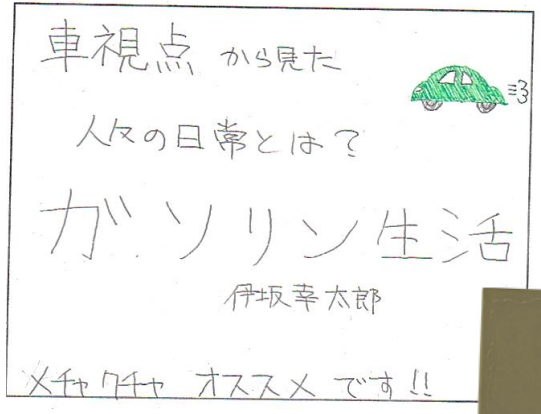 車視点から見た
人々の日常とは？
ガソリン生活
伊坂幸太郎
メチャクチャ オススメ です!!